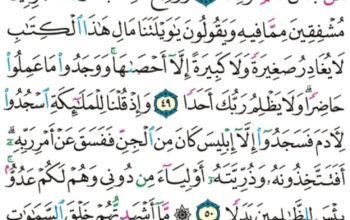 مُشْفِقِينَ مِمَّا فِيهِ وَيَقُولُونَ يَٰوَيْلَتَنَا مَالِ هَٰذَا ٱلْكِتَٰبِ
لَا يُغَادِرُ صَغِيرَةً وَلَا كَبِيرَةً إِلَّآ أَحْصَىٰهَا ۚ وَوَجَدُوا۟ مَا عَمِلُوا۟
حَاضِرًا ۗ وَلَا يَظْلِمُ رَبُّكَ أَحَدًا ٤٩ وَإِذْ قُلْنَا لِلْمَلَٰٓئِكَةِ ٱسْجُدُوا۟
لِـَٔادَمَ فَسَجَدُوٓا۟ إِلَّآ إِبْلِيسَ كَانَ مِنَ ٱلْجِنِّ فَفَسَقَ عَنْ أَمْرِ رَبِّهِۦٓ ۗ
أَفَتَتَّخِذُونَهُۥ وَذُرِّيَّتَهُۥٓ أَوْلِيَآءَ مِن دُونِى وَهُمْ لَكُمْ عَدُوٌّۢ ۚ
بِئْسَ لِلظَّٰلِمِينَ بَدَلًا ٥٠ ۞ مَّآ أَشْهَدتُّهُمْ خَلْقَ ٱلسَّمَٰوَٰتِ